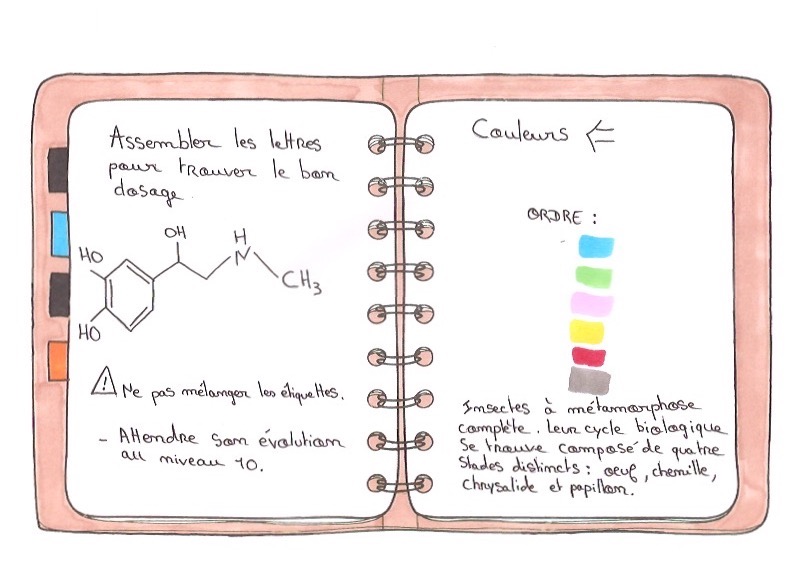 Assembler les lettres
pour trouver le bon
dosage.
OH
H
N
HO
CH3
HO
! Ne pas mélanger les étiquettes.
- Attendre son évolution
au niveau 10.
Couleurs
ORDRE :
Insectes à métamorphose
complète. Leur cycle biologique
se trouve composé de quatre
stades distincts : oeuf, chenille,
chrysalide et papillon.